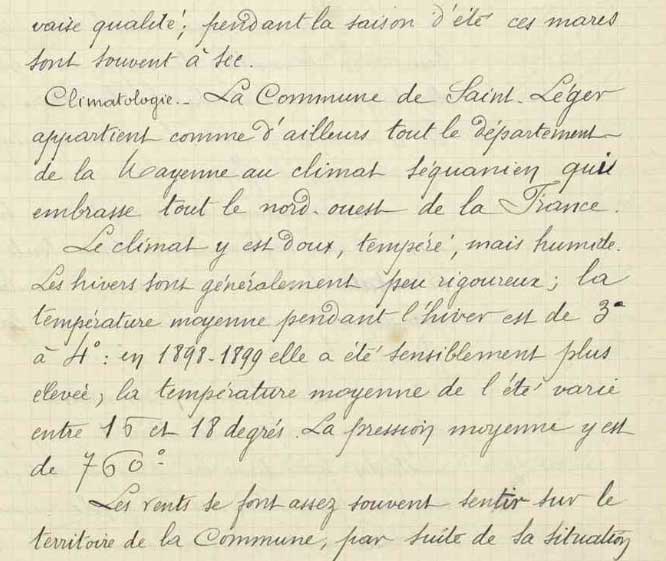 vaise qualité; pendant la saison d'été ces mares
sont souvent à sec.
Climatologie.- La Commune de Saint-Léger
appartient comme d'ailleurs tout le département
de la Mayenne au climat séquanien qui
embrasse tout le nord-ouest de la France.
Le climat y est doux, tempéré, mais humide.
Les hivers sont généralement peu rigoureux; la
température moyenne pendant l'hiver est de 3°
à 4°: en 1898-1899 elle a été sensiblement plus
élevée; la température moyenne de l'été varie
entre 16 et 18 degrés. La pression moyenne y est
de 760°.
Les vents se font assez souvent sentir sur le
territoire de la Commune, par suite de sa situation